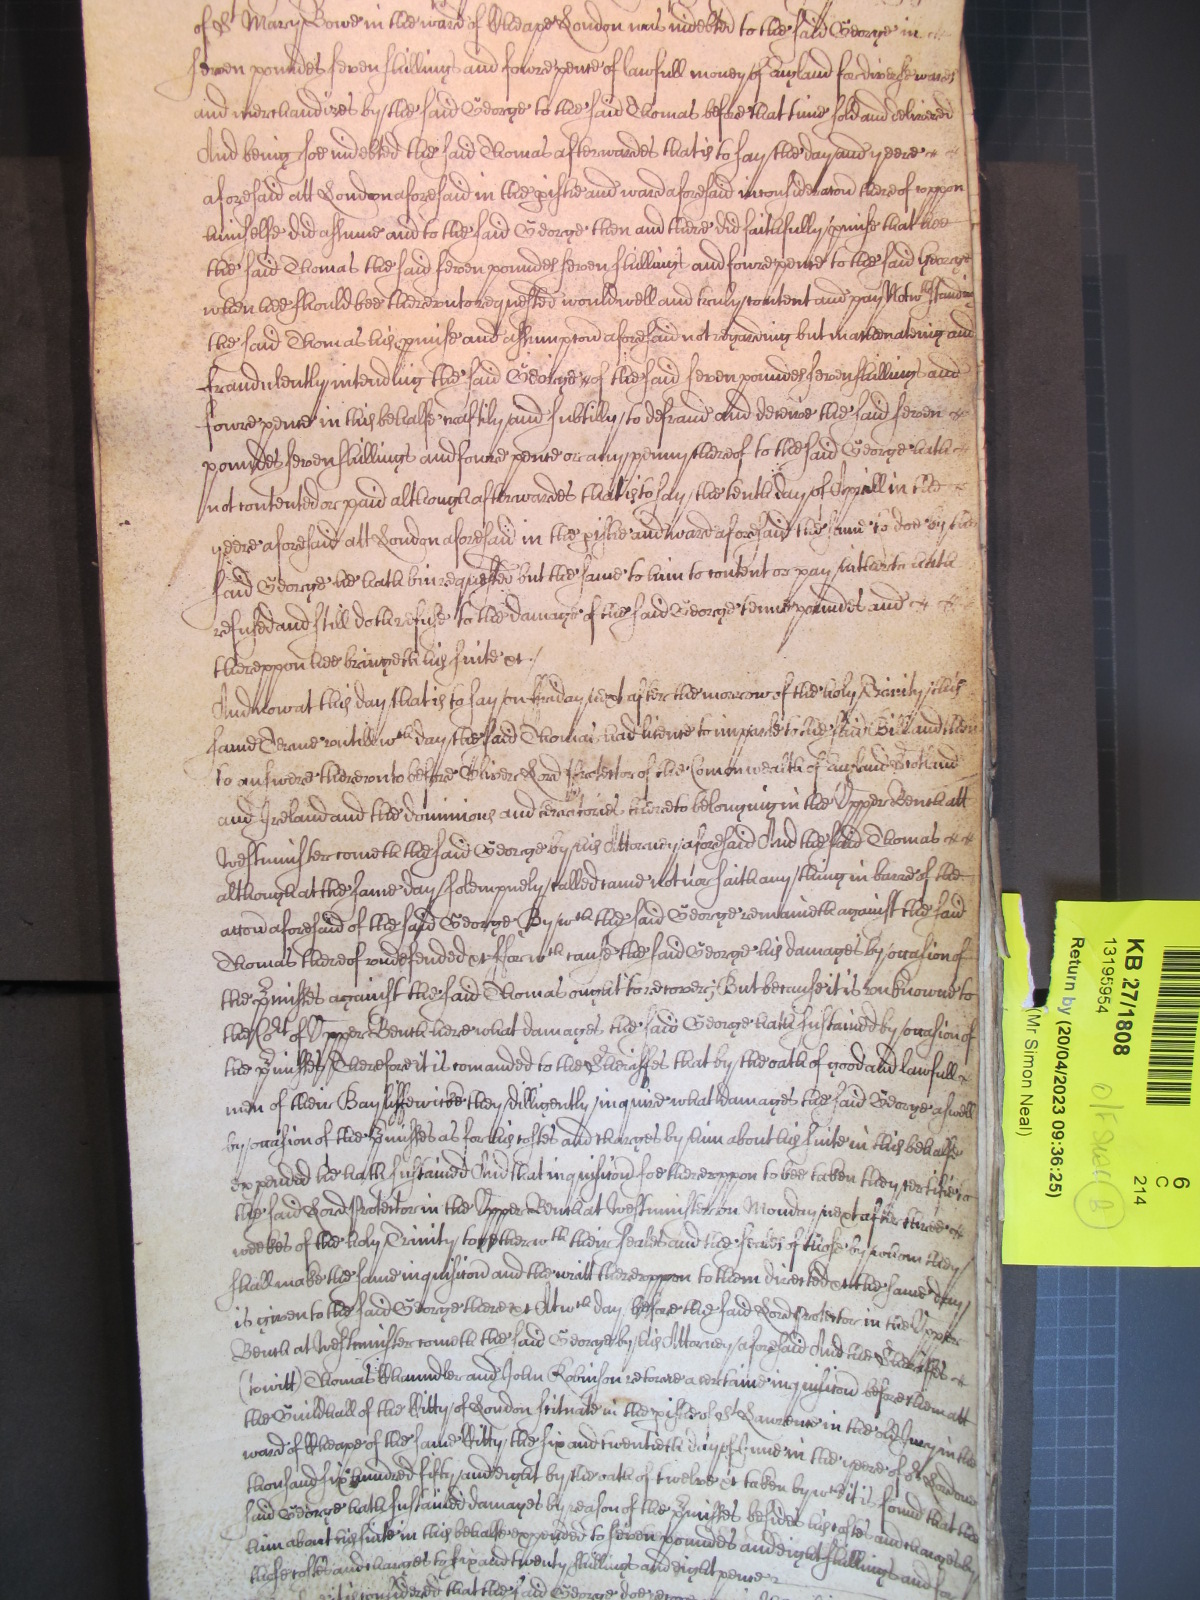 of St Mary Bowe in the ward of Cheape London was indebted to the said George in
seven poundes seven shillings and fowre pence of lawfull money of England for diverse wares
and merchandizes by the said George to the said Thomas before that time sold and delivered
And being soe indebted the said Thomas afterwardes that is to say the day and yeere
aforesaid att London aforesaid in the pishe and ward aforesaid in consideracon thereof uppon
himselfe did assume and to the said George then and there did faithfully pmise that hee
the said Thomas the said seven poundes seven shillings and fowre pence to the said George
when hee should bee thereunto requested would well and truly content and pay Notwthstanding
the said Thomas his pmise and assumpcon aforesaid not regarding but machinateing and
fraudulently intending the said George of the said seven poundes seven shillings and
fowre pence in this behalfe craftily and subtilly to defraud and deceive the said seven
poundes seven shillings and fowre pence or any penny thereof to the said George hath
not contented or paid although afterwardes that is to say the tenth day of Aprill in the
yeere aforesaid att London aforesaid in the pishe and ward aforesaid the same to doe by the
said George he hath bin requested but the same to him to content or pay hitherto hath
refused and still doth refuse To the damage of the said George tenne poundes and
thereuppon hee bringeth his suite &c
And now at this day that is to say on Friday next after the morrow of the holy Trinity this
same Terme untill wch day the said Thomas had licence to imparle to the said Bill and then
to answere thereunto before Oliver Lord Protector of the Comonwealth of England Scotland
and Ireland and the dominions and territories thereto belonging in the Upper Bench att
Westminster cometh the said George by his Attorney aforesaid And the said Thomas
although at the same day solempnely called came not nor saith any thing in barre of the
accon aforesaid of the said George By wch the said George remaineth against the said
Thomas thereof undefended &c For wch cause the said George his damages by occasion of
the pmisses against the said Thomas ought to recover; But because it is unknowne to
the Cort of Upper Bench here what damages the said George hath sustained by occasion of
the pmisses Therefore it is comanded to the Sheriffes that by the oath of good and lawfull
men of their Bayliffewicke they dilligently inquire what damages the said George aswell
by occasion of the pmisses as for his costes and charges by him about his suite in this behalfe
expended he hath sustained And that inquisicon soe thereuppon to bee taken they certifie to
the said Lord Protector in the Upper Bench at Westminster on Monday next after three
weekes of the holy Trinity together wth their seales and the seales of those by whom they
shall make the same inquisicon and the writt thereuppon to them directed &c the same day
is given to the said George there &c At wch day before the said Lord Protector in the Upper
Bench at Westminster cometh the said George by his Attorney aforesaid And the Sheriffes
(to witt) Thomas Chamdler and John Robinson retorne a certaine inquisicon before them att
the Guildhall of the Citty of London scituate in the pishe of St Lawrence in the old Jury in the
ward of Cheape of the same Citty the six and twentieth day of June in the yeere of or Lord one
thousand six hundred fifty and eight by the oath of twelve &c taken by wch it is found that the
said George hath sustained damages by reason of the pmisses besides his costes and charges by
him about his suite in this behalfe expended to seven poundes and eight shillings and for
those costes and charges to six and twenty shillings and eight pence
it is considered that the said George doe
KB 27/1808
13195954
Return by (20/04/2023 09:36:25)
(Mr Simon Neal)
6
C
214